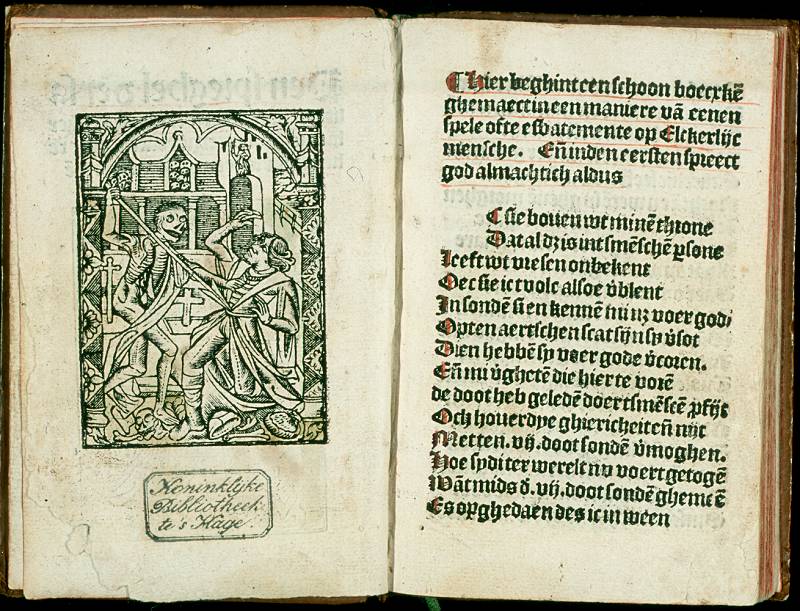 Koninklyke
Bibliotheek
te's Hage.
¶ Hier beghint een schoon boecxkē
ghemaect in een maniere vā eenen
spele ofte esbatemente op Elckerlijc
mensche. Eñ inden eersten spreect
god almachtich aldus
Ic sie bouen wt minē throne
Dat al dz is int smēschē ꝑsone
Leeft wt vresen onbekent
Oec sie ic tvolc alsoe v̄blent
In sondē si en kennē mi nz voer god
Opten aertschen scat sijn sy v̄sot
Dien hebbē sy voer gode v̄coren.
Eñ mi v̄ghetē die hier te vorē
de doot heb geledē doer tsmēscē ꝓfijt
Och houerdye ghiericheit eñ nijt
Metten .vij. doot sondē v̄moghen.
Hoe sydi ter werelt nv voert getogē
Wāt mids d̄ .vij. doot sondē ghemeē
Es op ghedaen des ic in ween